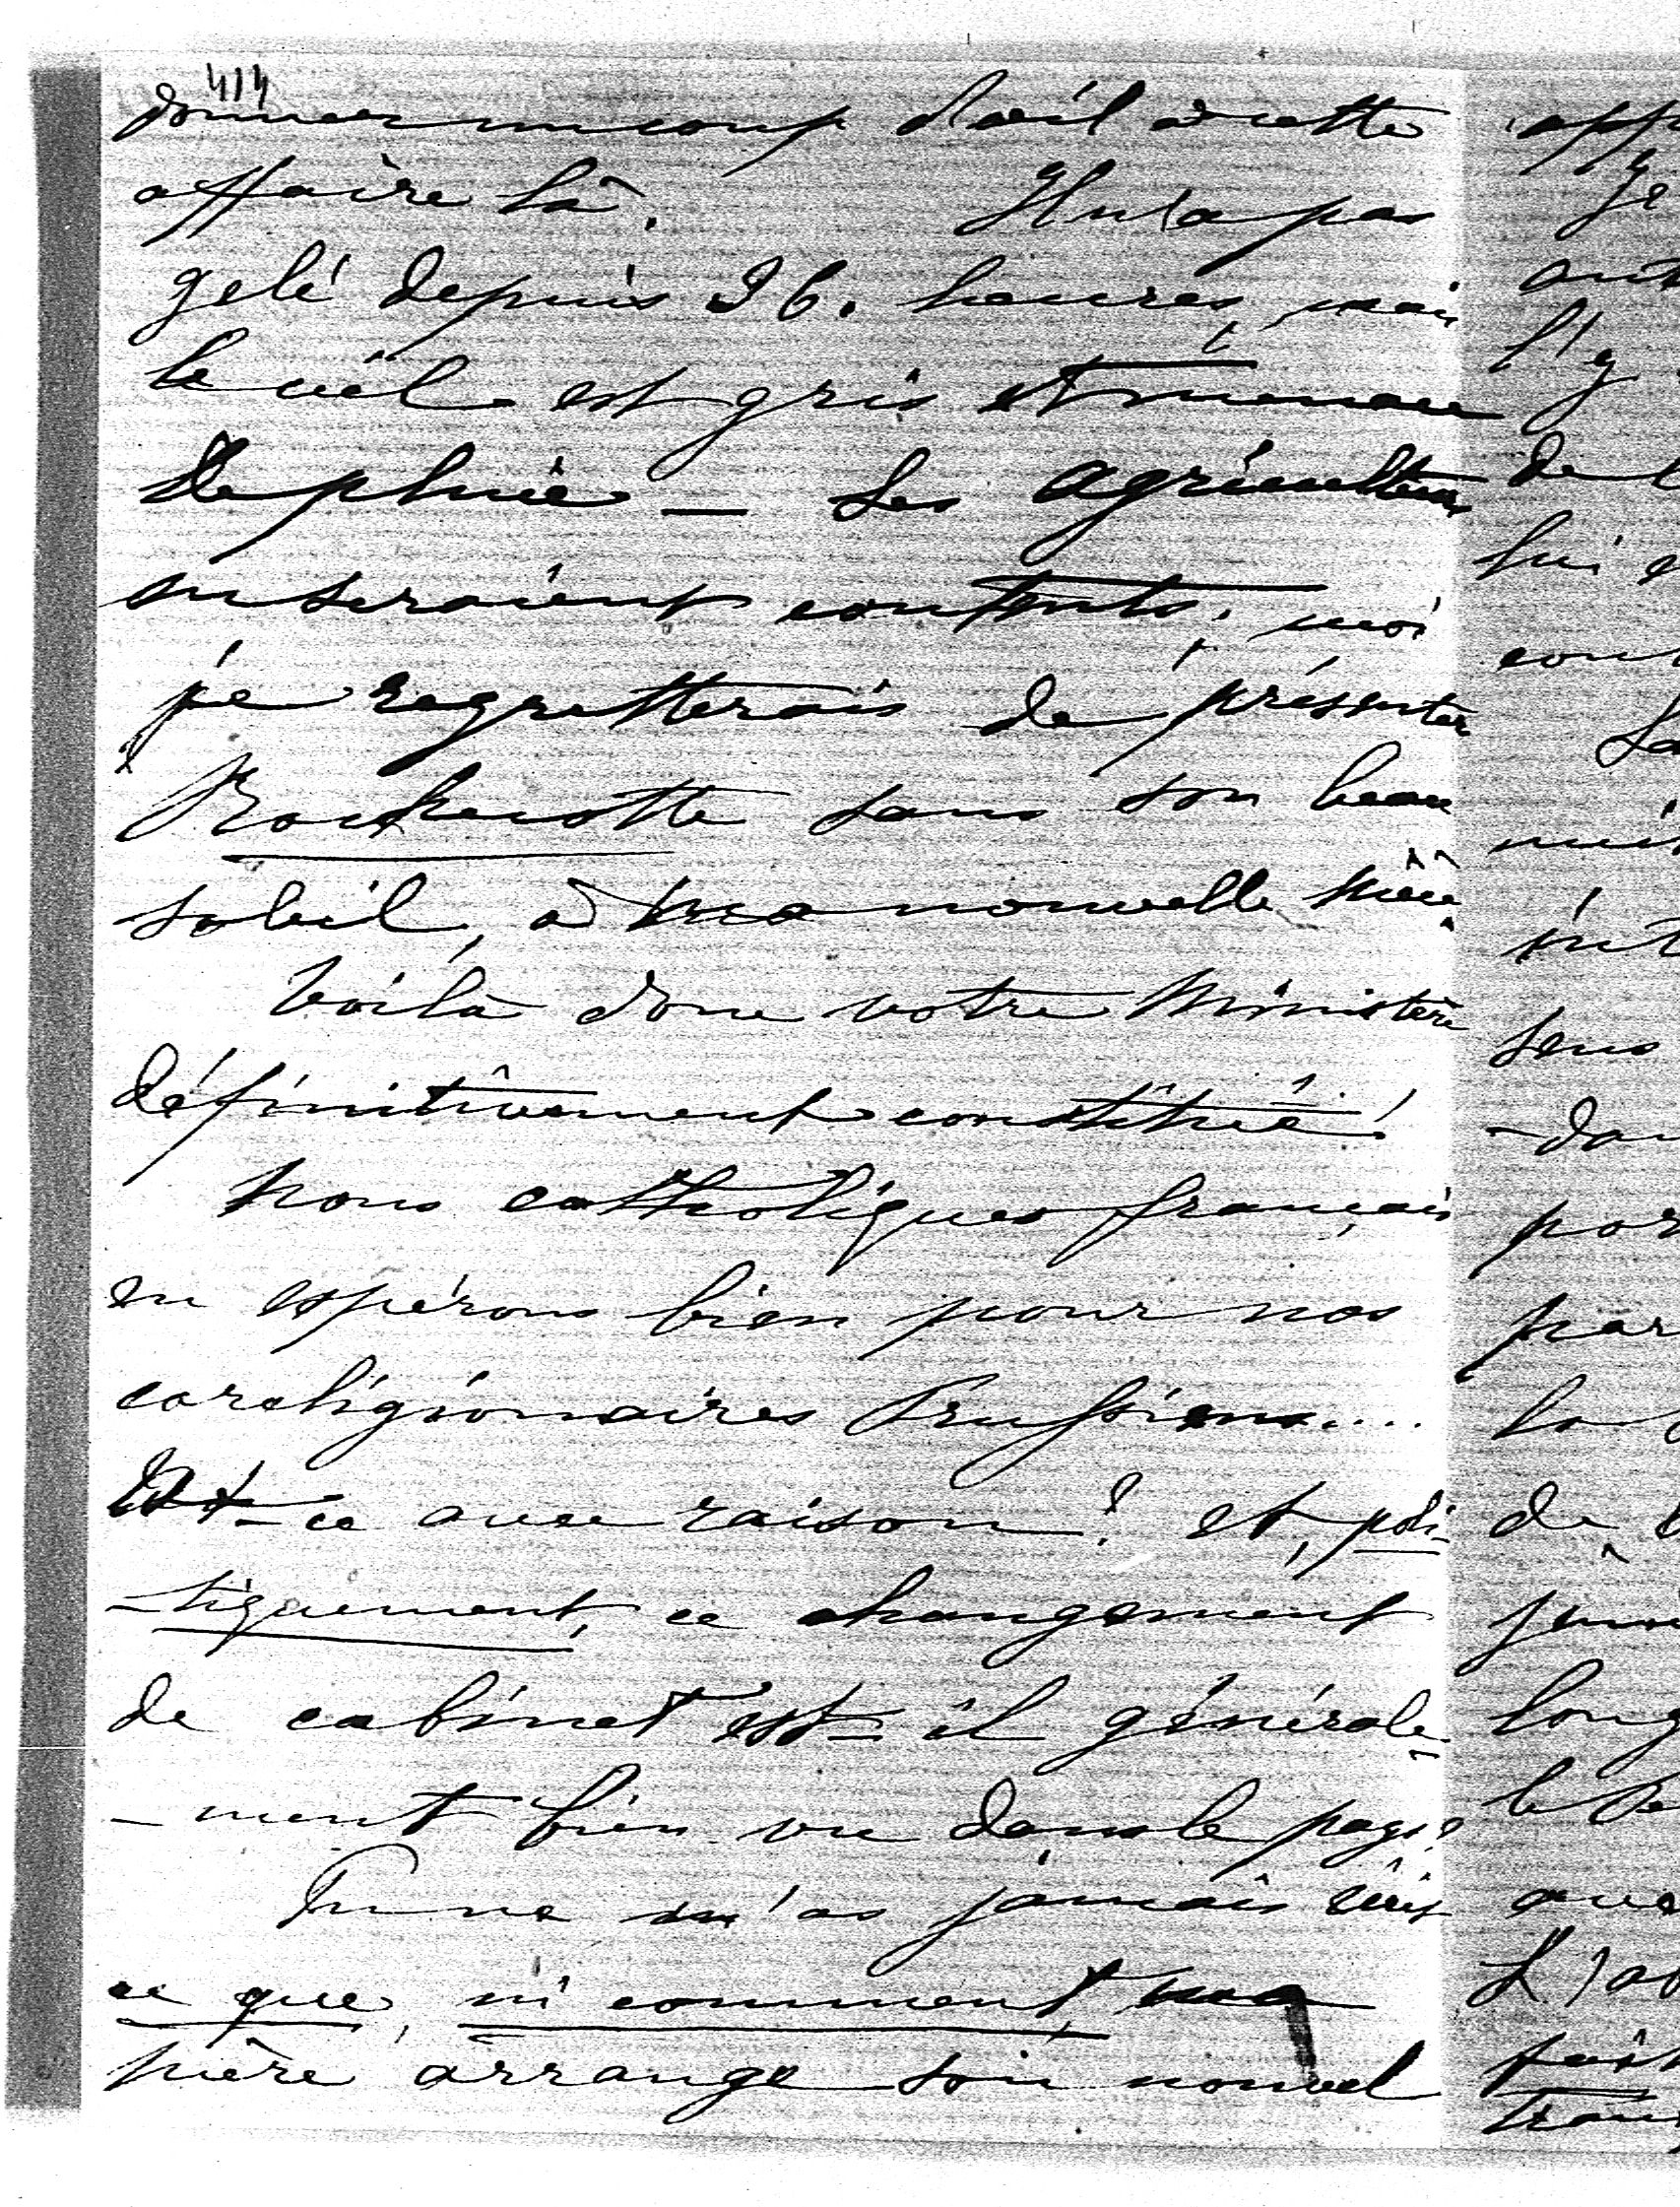 414
donner un coup d'œil à cette
affaire là. Il n'a pas
gelé depuis 36. heures, mais
le ciel est gris et menace
de pluie — Les agriculteurs
en seraient contents; moi
je regretterais de présenter
Rochecotte sans son beau
soleil, à ma nouvelle nièce.
Voilà donc votre Ministère
définitivement constitué!
Nous catholiques français
en espérons bien pour nos
coreligionnaires Prussiens....
Est-ce avec raison? et, poli-
-tiquement, ce changement
de cabinet est-il générale-
-ment bien vu dans le pays?
Tu ne m'as jamais écrit
ce que, ni comment, ma
mère arrange son nouvel